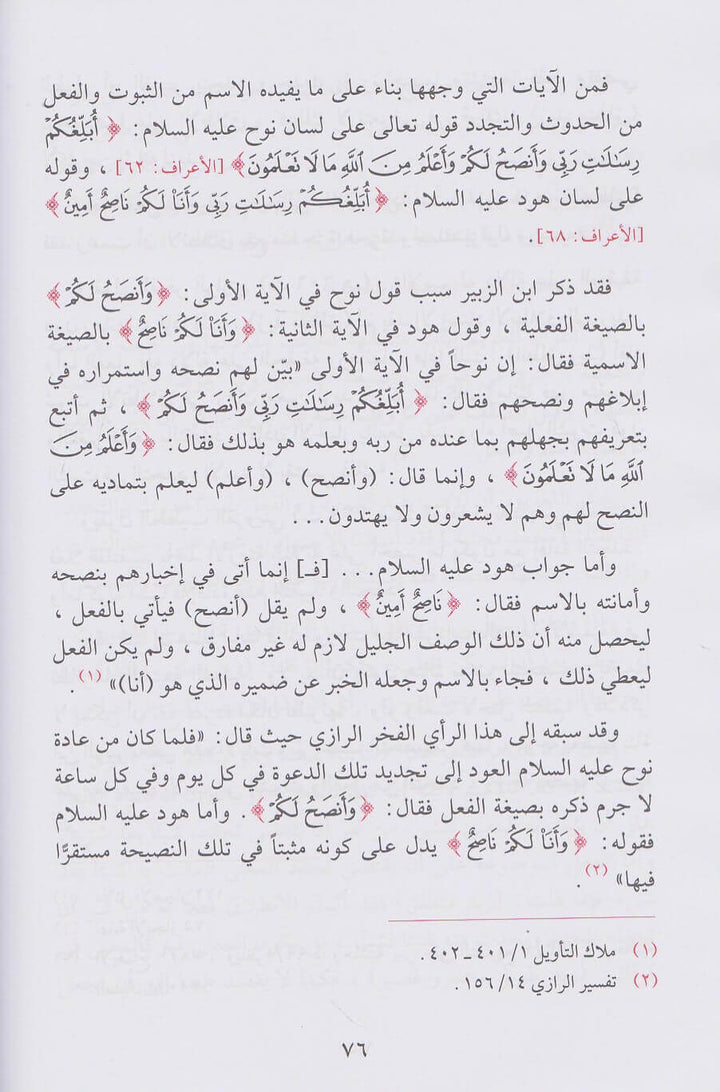 فمن الآيات التي وجهها بناء على ما يفيده الاسم من الثبوت والفعل
من الحدوث والتجدد قوله تعالى على لسان نوح عليه السلام: ﴿أُبَلِّغُكُمْ
رِسَٰلَٰتِ رَبِّى وَأَنصَحُ لَكُمْ وَأَعْلَمُ مِنَ ٱللَّهِ مَا لَا تَعْلَمُونَ﴾ [الأعراف: ٦٢] ، وقوله
على لسان هود عليه السلام: ﴿أُبَلِّغُكُمْ رِسَٰلَٰتِ رَبِّى وَأَنَا۠ لَكُمْ نَاصِحٌ أَمِينٌ﴾
[الأعراف: ٦٨].
فقد ذكر ابن الزبير سبب قول نوح في الآية الأولى: ﴿وَأَنصَحُ لَكُمْ﴾
بالصيغة الفعلية ، وقول هود في الآية الثانية: ﴿وَأَنَا۠ لَكُمْ نَاصِحٌ﴾ بالصيغة
الاسمية فقال: إن نوحاً في الآية الأولى «بيّن لهم نصحه واستمراره في
إبلاغهم ونصحهم فقال: ﴿أُبَلِّغُكُمْ رِسَٰلَٰتِ رَبِّى وَأَنصَحُ لَكُمْ﴾ ، ثم أتبع
بتعريفهم بجهلهم بما عنده من ربه وبعلمه هو بذلك فقال: ﴿وَأَعْلَمُ مِنَ
ٱللَّهِ مَا لَا تَعْلَمُونَ﴾ ، وإنما قال: (وأنصح) ، (وأعلم) ليعلم بتماديه على
النصح لهم وهم لا يشعرون ولا يهتدون...
وأما جواب هود عليه السلام... [فـ] إنما أتى في إخبارهم بنصحه
وأمانته بالاسم فقال: ﴿نَاصِحٌ أَمِينٌ﴾ ، ولم يقل (أنصح) فيأتي بالفعل ،
ليحصل منه أن ذلك الوصف الجليل لازم له غير مفارق ، ولم يكن الفعل
ليعطي ذلك ، فجاء بالاسم وجعله الخبر عن ضميره الذي هو (أنا)» (١) .
وقد سبقه إلى هذا الرأي الفخر الرازي حيث قال: «فلما كان من عادة
نوح عليه السلام العود إلى تجديد تلك الدعوة في كل يوم وفي كل ساعة
لا جرم ذكره بصيغة الفعل فقال: ﴿وَأَنصَحُ لَكُمْ﴾. وأما هود عليه السلام
فقوله: ﴿وَأَنَا۠ لَكُمْ نَاصِحٌ﴾ يدل على كونه مثبتاً في تلك النصيحة مستقرًّا
فيها» (٢) .
(١) ملاك التأويل ١/ ٤٠١ ـ ٤٠٢ .
(٢) تفسير الرازي ١٤/ ١٥٦ .
٧٦